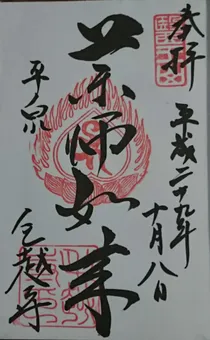 奉拝
平成二十九年
十月八日
薬師如来
平泉
毛越寺